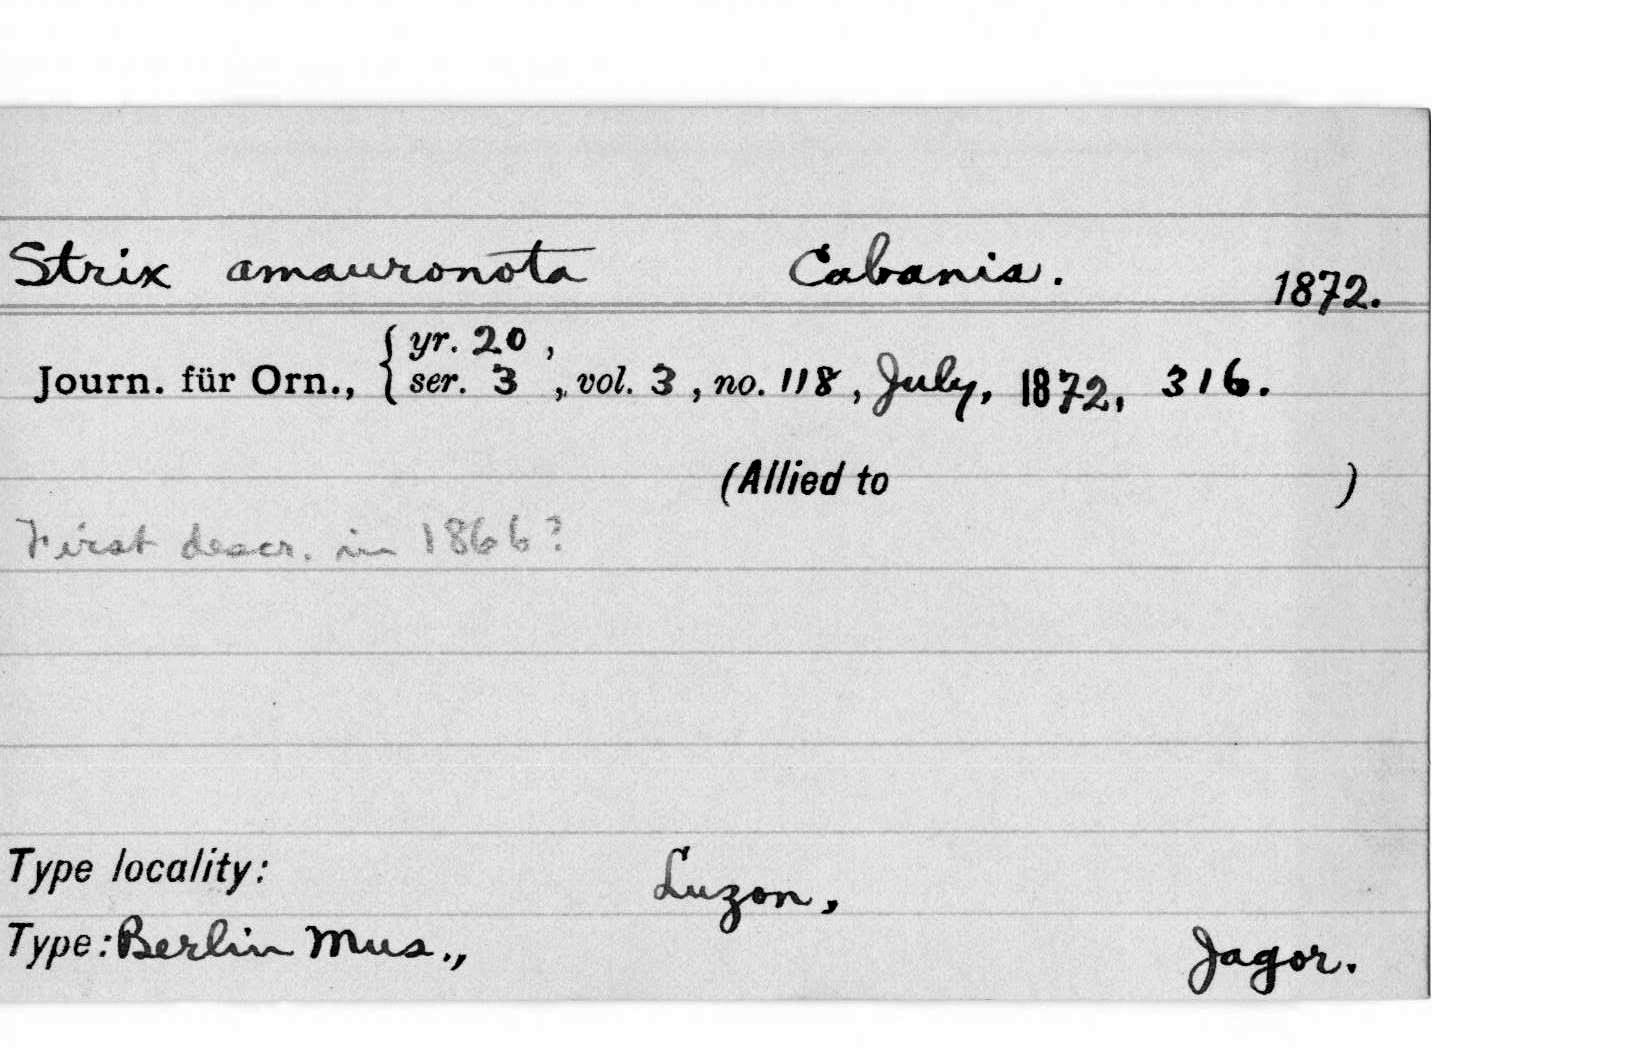 Strix amauronota Cabanis. 1872.
Journ. für Orn., { yr. 20 , ser. 3 , vol. 3 , no. 118 , July, 1872, 316.
(Allied to )
First descr. in 1866?
Type locality: Luzon,
Type: Berlin Mus., Jagor.